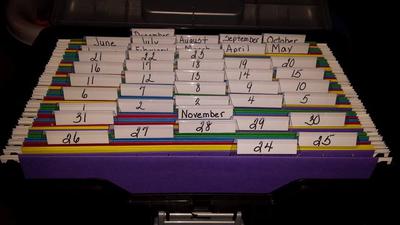 December
June July August September October
February March April May
21 22 23
16 17 18 19 20
11 12 13 14 15
6 7 8 9 10
1 2 3 4 5
31 November
26 27 28 29 30
24 25